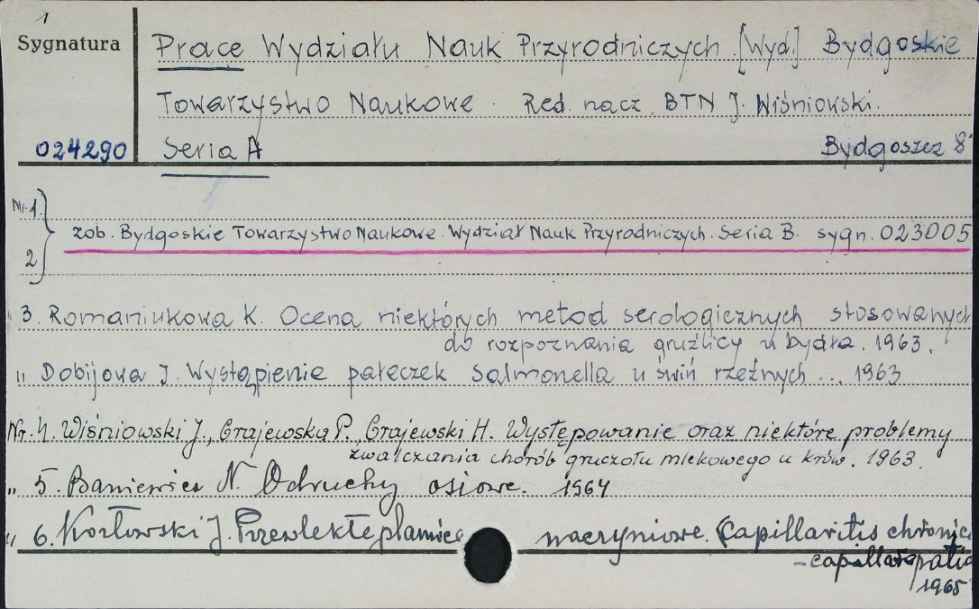 1
Sygnatura
Prace Wydziału Nauk Przyrodniczych [Wyd.] Bydgoskie
Towarzystwo Naukowe. Red. nacz. BTN J. Wiśniowski.
024290 Seria A Bydgoszcz 8°
Nr 1.
zob. Bydgoskie Towarzystwo Naukowe. Wydział Nauk Przyrodniczych. Seria B. sygn. 023005
2
" 3. Romaniukowa K. Ocena niektórych metod serologicznych stosowanych
do rozpoznania gruźlicy u bydła. 1963.
" Dobijowa J. Wystąpienie pałeczek Salmonella u świń rzeźnych... 1963
Nr. 4. Wiśniowski J., Grajewska P., Grajewski H. Występowanie oraz niektóre problemy
zwalczania chorób gruczołu mlekowego u krów. 1963.
" 5. Baniewicz N. Odruchy osiowe. 1964
" 6. Kozłowski J. Przewlekłe plamice naczyniowe. Capillaritis chronica
- capillaropatia
1965